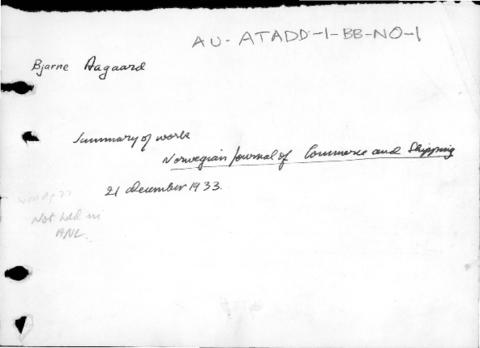 AU-ATADD-1-BB-NO-1
Bjarne Aagaard
Summary of work
Norwegian Journal of Commerce and Shipping
21 december 1933.
Not held in
ANL